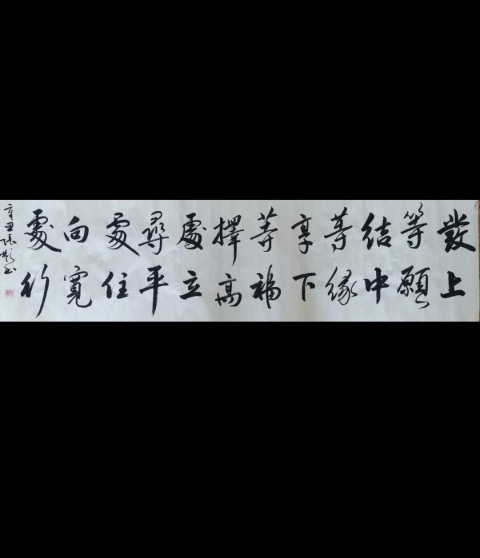 發上
等願
結中
等緣
享下
等福
擇高
處立
尋平
處住
向寬
處行
辛丑